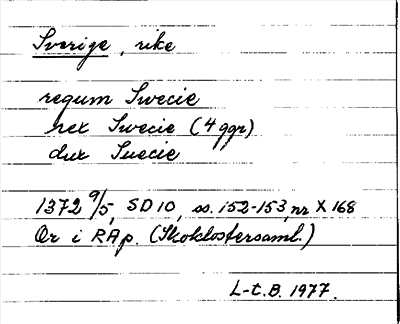 Sverige, rike
regum Swecie
rex Swecie (4 ggr)
dux Suecie
1372 9/5, SD 10, ss. 152-153, nr X 168
Or i RAp. (Skoklostersaml.)
L-t. B. 1977.